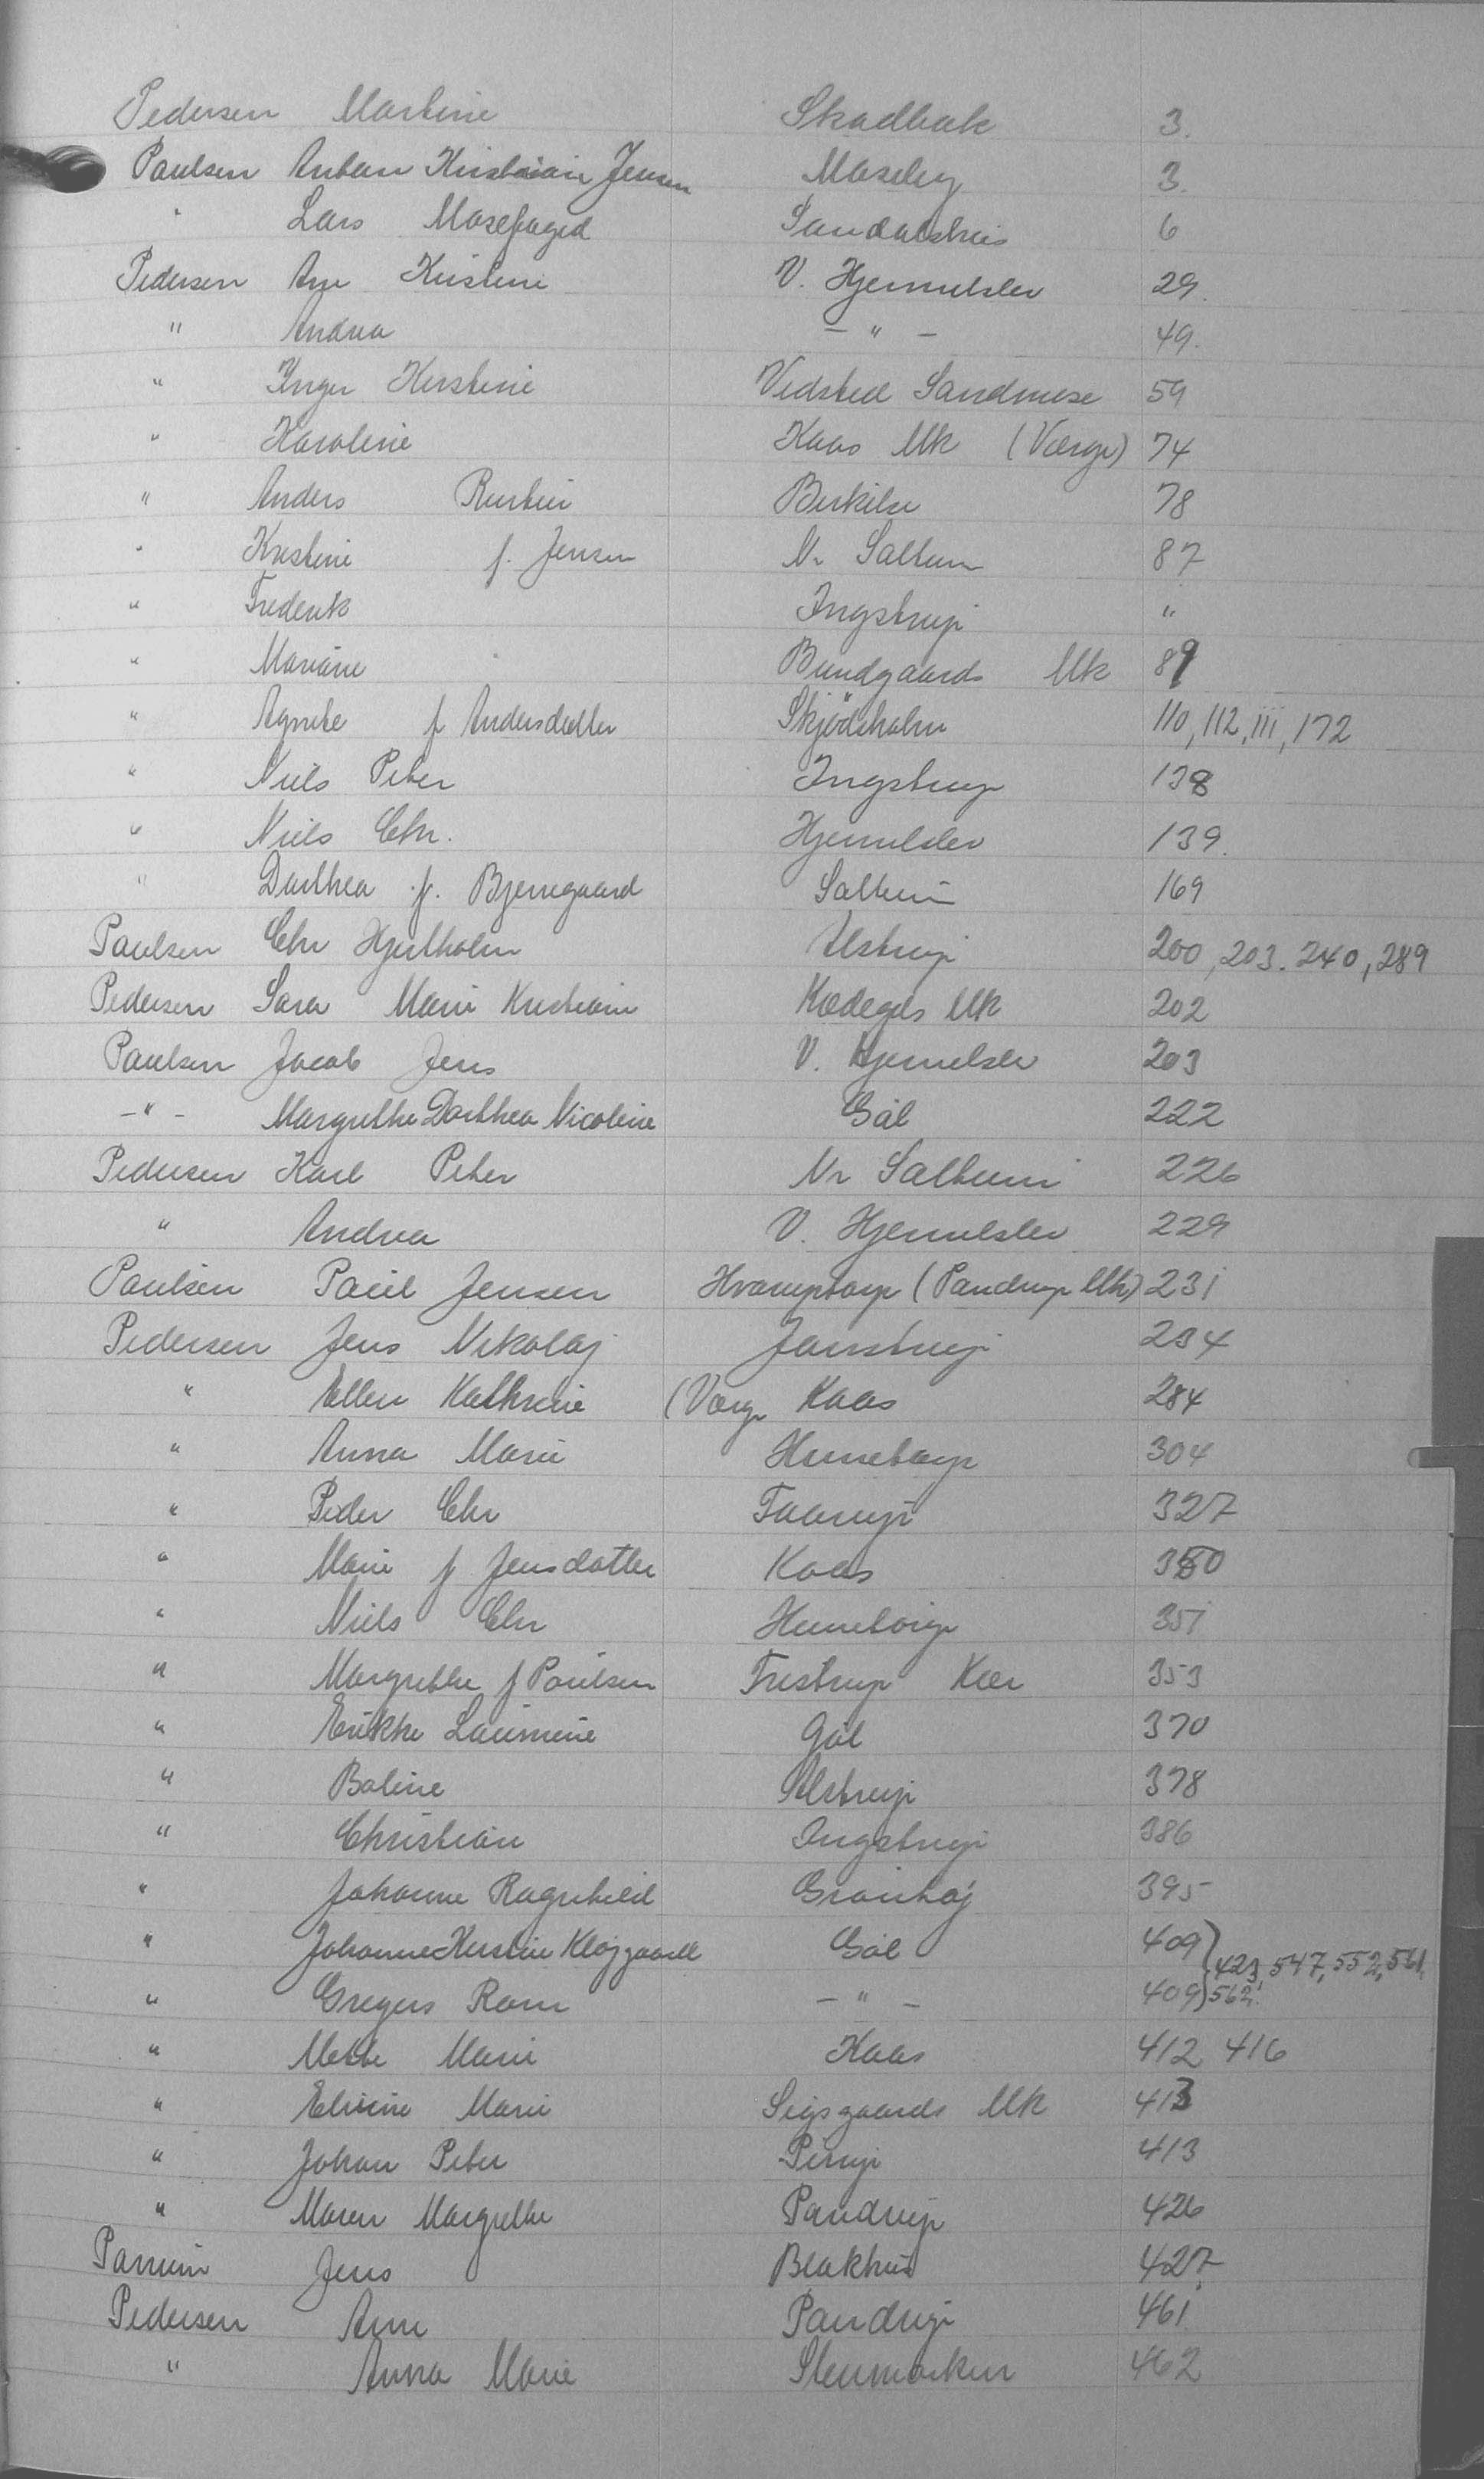 Pedersen Martine Skadbæk 3.
Paulsen Anton Kristian Jensen Moseby 3.
" Lars Mosefoged Sandalshus 6
Pedersen Ane Kirstine V. Hjermeslev 29.
" Andrea – " – 49.
" Inger Kirstine Vedsted Sandmose 59
" Karoline Kaas Mk (Værge) 74
" Anders Birkelse 78
" Kirstine f. Jensen Nr Saltum 87
" Frederik Ingstrup "
" Mariane Bundgaards Mk 89
" Agnete f Andersdatter Skjødsholm 110, 112, 111, 172
" Niels Peter Ingstrup 138
" Niels Chr. Hjermeslev 139.
" Dorthea f. Bjerregaard Saltum 169
Paulsen Chr Hjortholm Alstrup 200, 203. 240, 289
Pedersen Sara Marie Kristiane Kædegds Mk 202
Paulsen Jacob Jens V. Hjermeslev 203
– " – Margrethe Dorthea Nicoline Gøl 222
Pedersen Karl Peter Nr Saltum 226
" Andrea V. Hjermeslev 229
Paulsen Paul Jensen Hvorupstorp (Pandrup Mk) 231
Pedersen Jens Nikolaj Janstrup 234
" Ellen Kathrine (Værge Kaas 284
" Anna Marie Hunetorp 304
" Peder Chr Faarup 327
" Marie f Jensdatter Kaas 350
" Niels Chr Hunetorp 351
" Margrethe f Poulsen Trestrup Kær 353
" Erikke Laurine Gøl 370
" Boline Alstrup 378
" Christian Ingstrup 386
" Johanne Ragnhild Grønhøj 395
" Johanne Kirstine Kløjgaard Gøl 409
423, 547, 552, 561,
" Gregers Rom – " – 409 562.
" Mette Marie Kaas 412 416
" Elvine Marie Sigsgaards Mk 413
" Johan Peter Pirup 413
" Maren Margrethe Pandrup 426
Jens Blokhus 427
Pedersen Ane Pandrup 461
" Anna Marie Stenmarken 462